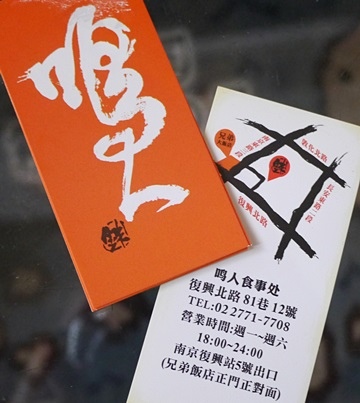 鸣人
兄弟
大飯店
敦化北路
長安東路二段
復興北路
鸣人食事处
復興北路 81巷 12號
TEL:02 2771-7708
營業時間:週一~週六
18:00~24:00
南京復興站5號出口
(兄弟飯店正門正對面)